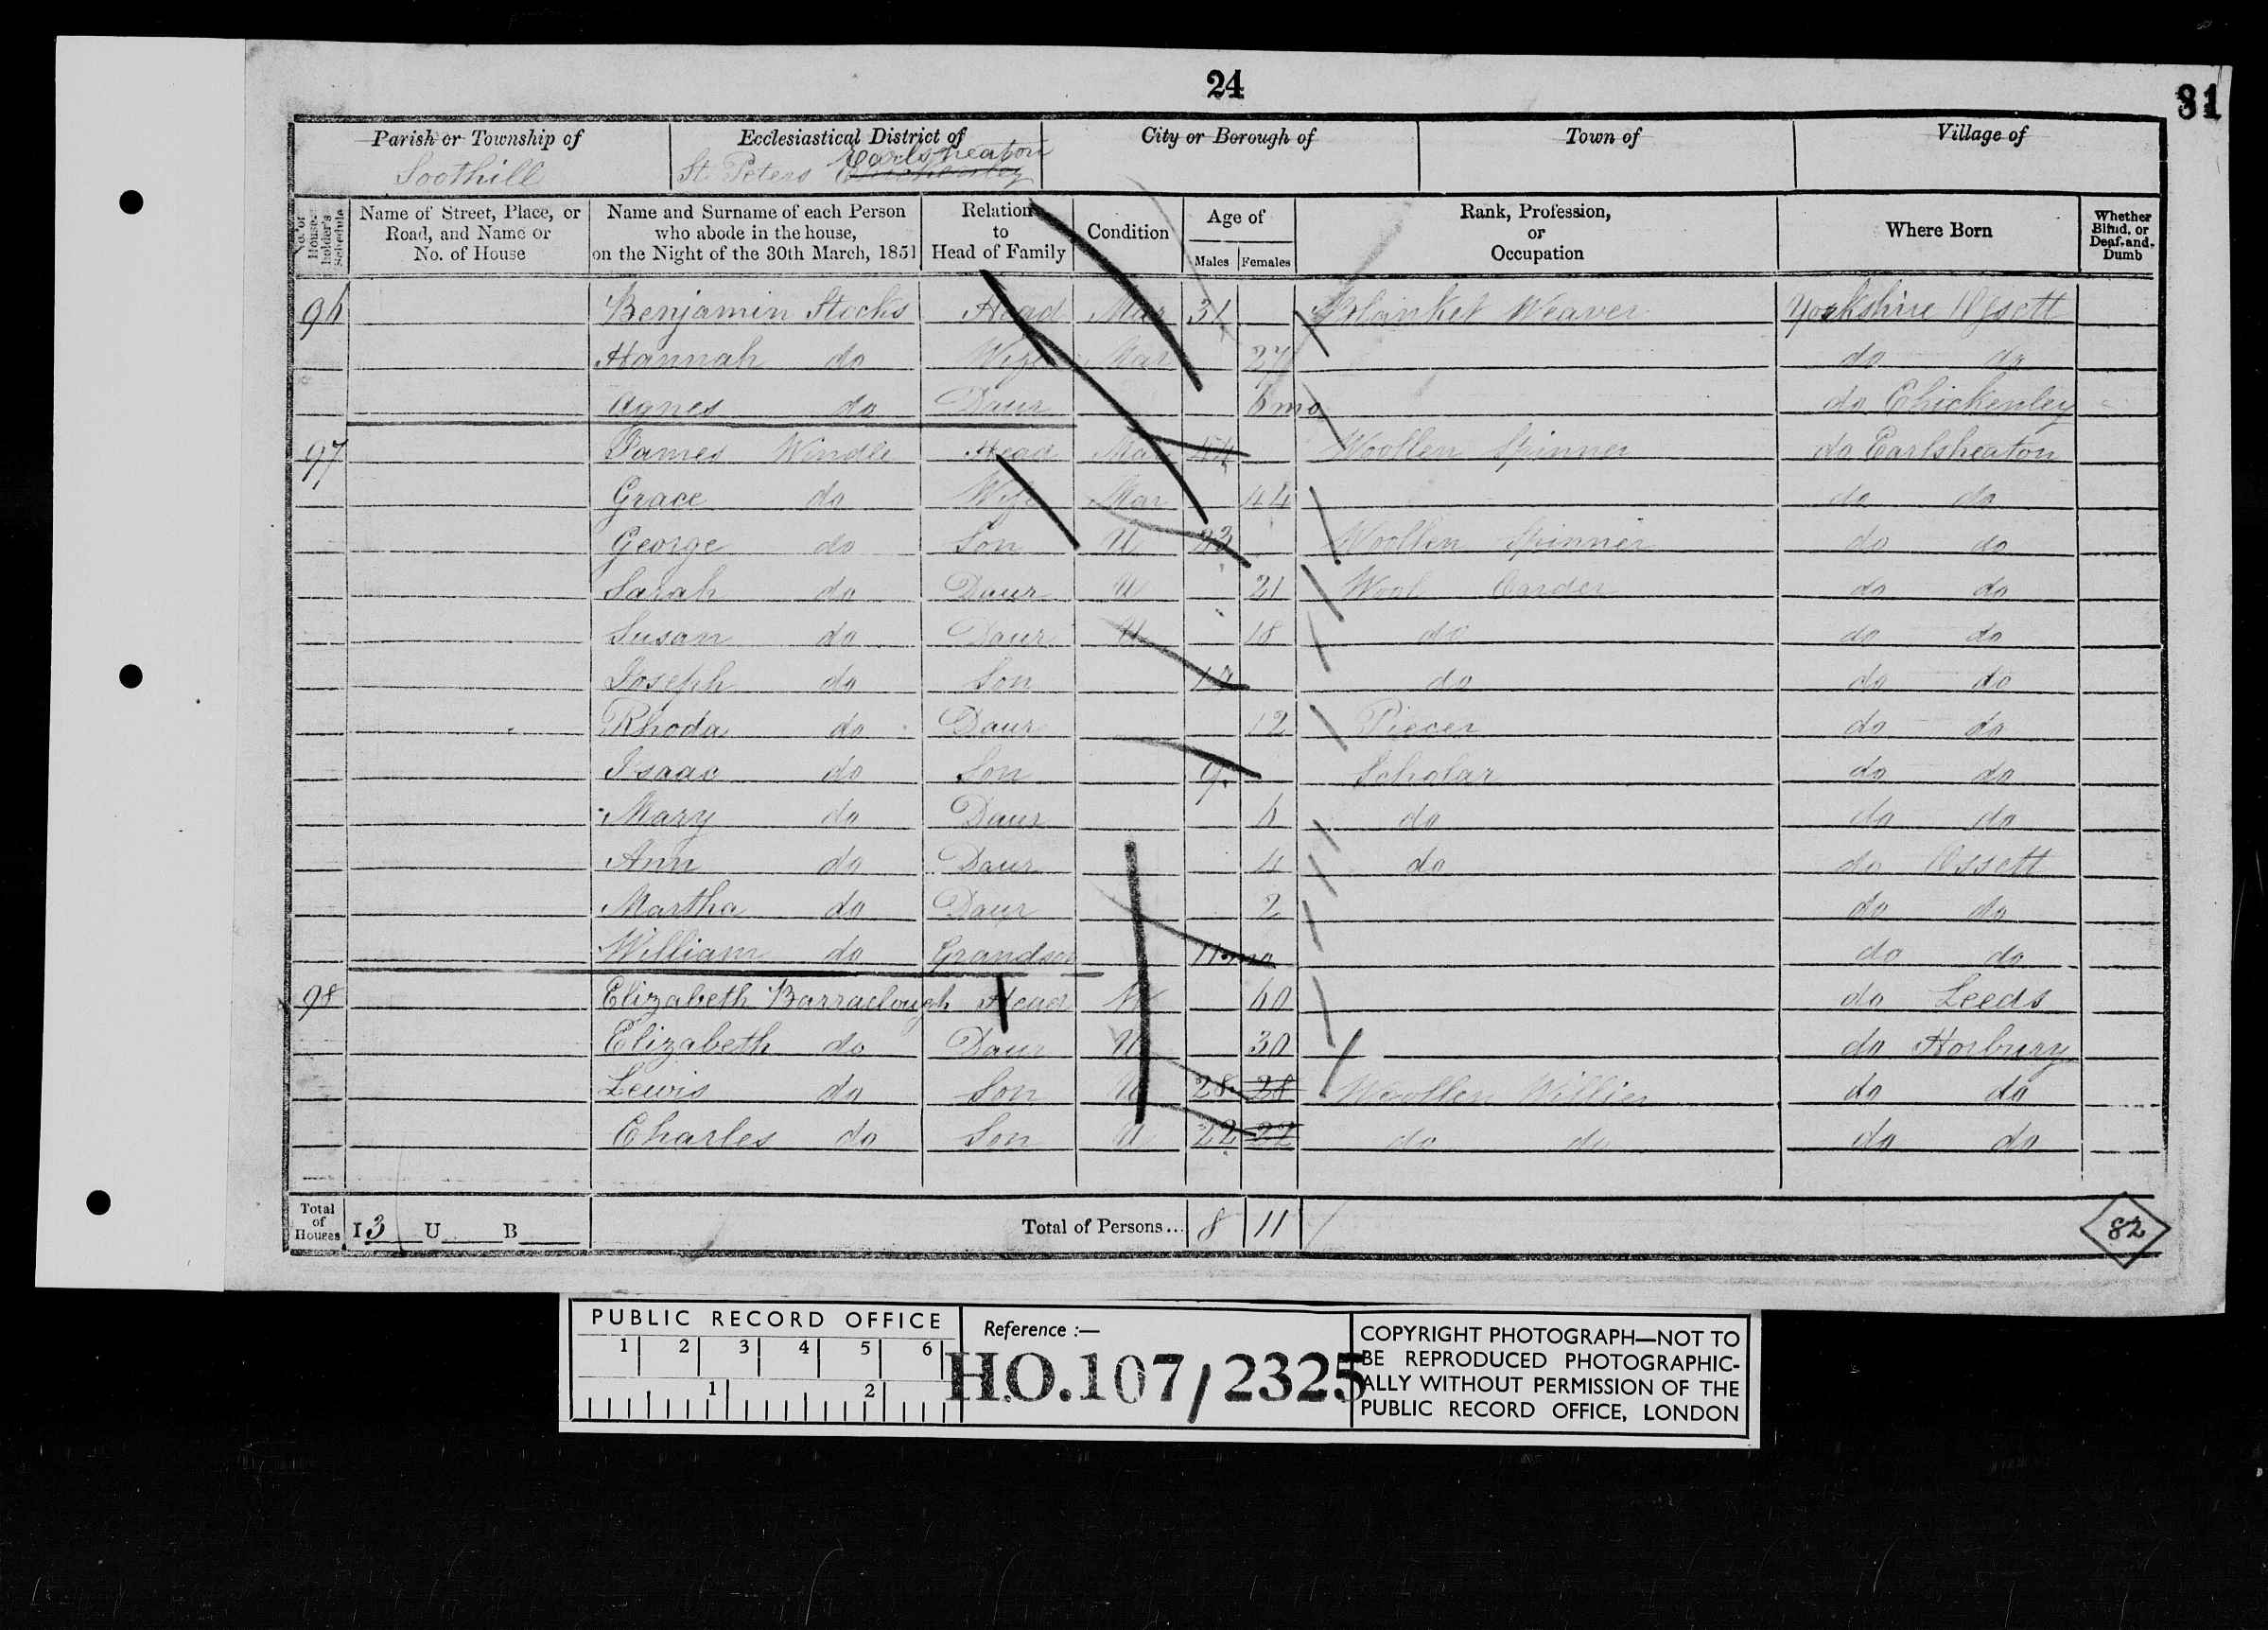 24
81
Parish or Township of
Soothill
Ecclesiastical District of
Earlsheaton
St. Peters Chickenley
City or Borough of
Town of
Village of
No. of House-holder's Schedule
Name of Street, Place, or Road, and Name or No. of House
Name and Surname of each Person who abode in the house, on the Night of the 30th March, 1851
Relation to Head of Family
Condition
Age of
Males Females
Rank, Profession, or Occupation
Where Born
Whether Blind, or Deaf-and-Dumb
96 Benjamin Stocks Head Mar 31 Blanket Weaver Yorkshire Ossett
Hannah do Wife Mar 27 do do
Agnes do Daur 6 mo do Chickenley
97 James Windle Head Mar 44 Woollen Spinner do Earlsheaton
Grace do Wife Mar 44 do do
George do Son U 23 Woollen Spinner do do
Sarah do Daur U 21 Wool Carder do do
Susan do Daur U 18 do do do
Joseph do Son do do do
Rhoda do Daur 12 Piecer do do
Isaac do Son 9 Scholar do do
Mary do Daur 6 do do do
Ann do Daur 4 do do Ossett
Martha do Daur 2 do do
William do Grandson 11 mo do do
98 Elizabeth Barraclough Head W 60 do Leeds
Elizabeth do Daur U 30 do Horbury
Lewis do Son U 28 28 Woollen Willier do do
Charles do Son U 22 22 do do do do
Total of Houses I 3 U B
Total of Persons... 8 11
82
PUBLIC RECORD OFFICE
1 2 3 4 5 6
1 2
Reference :-
H.O.107/2325
COPYRIGHT PHOTOGRAPH—NOT TO
BE REPRODUCED PHOTOGRAPHIC-
ALLY WITHOUT PERMISSION OF THE
PUBLIC RECORD OFFICE, LONDON